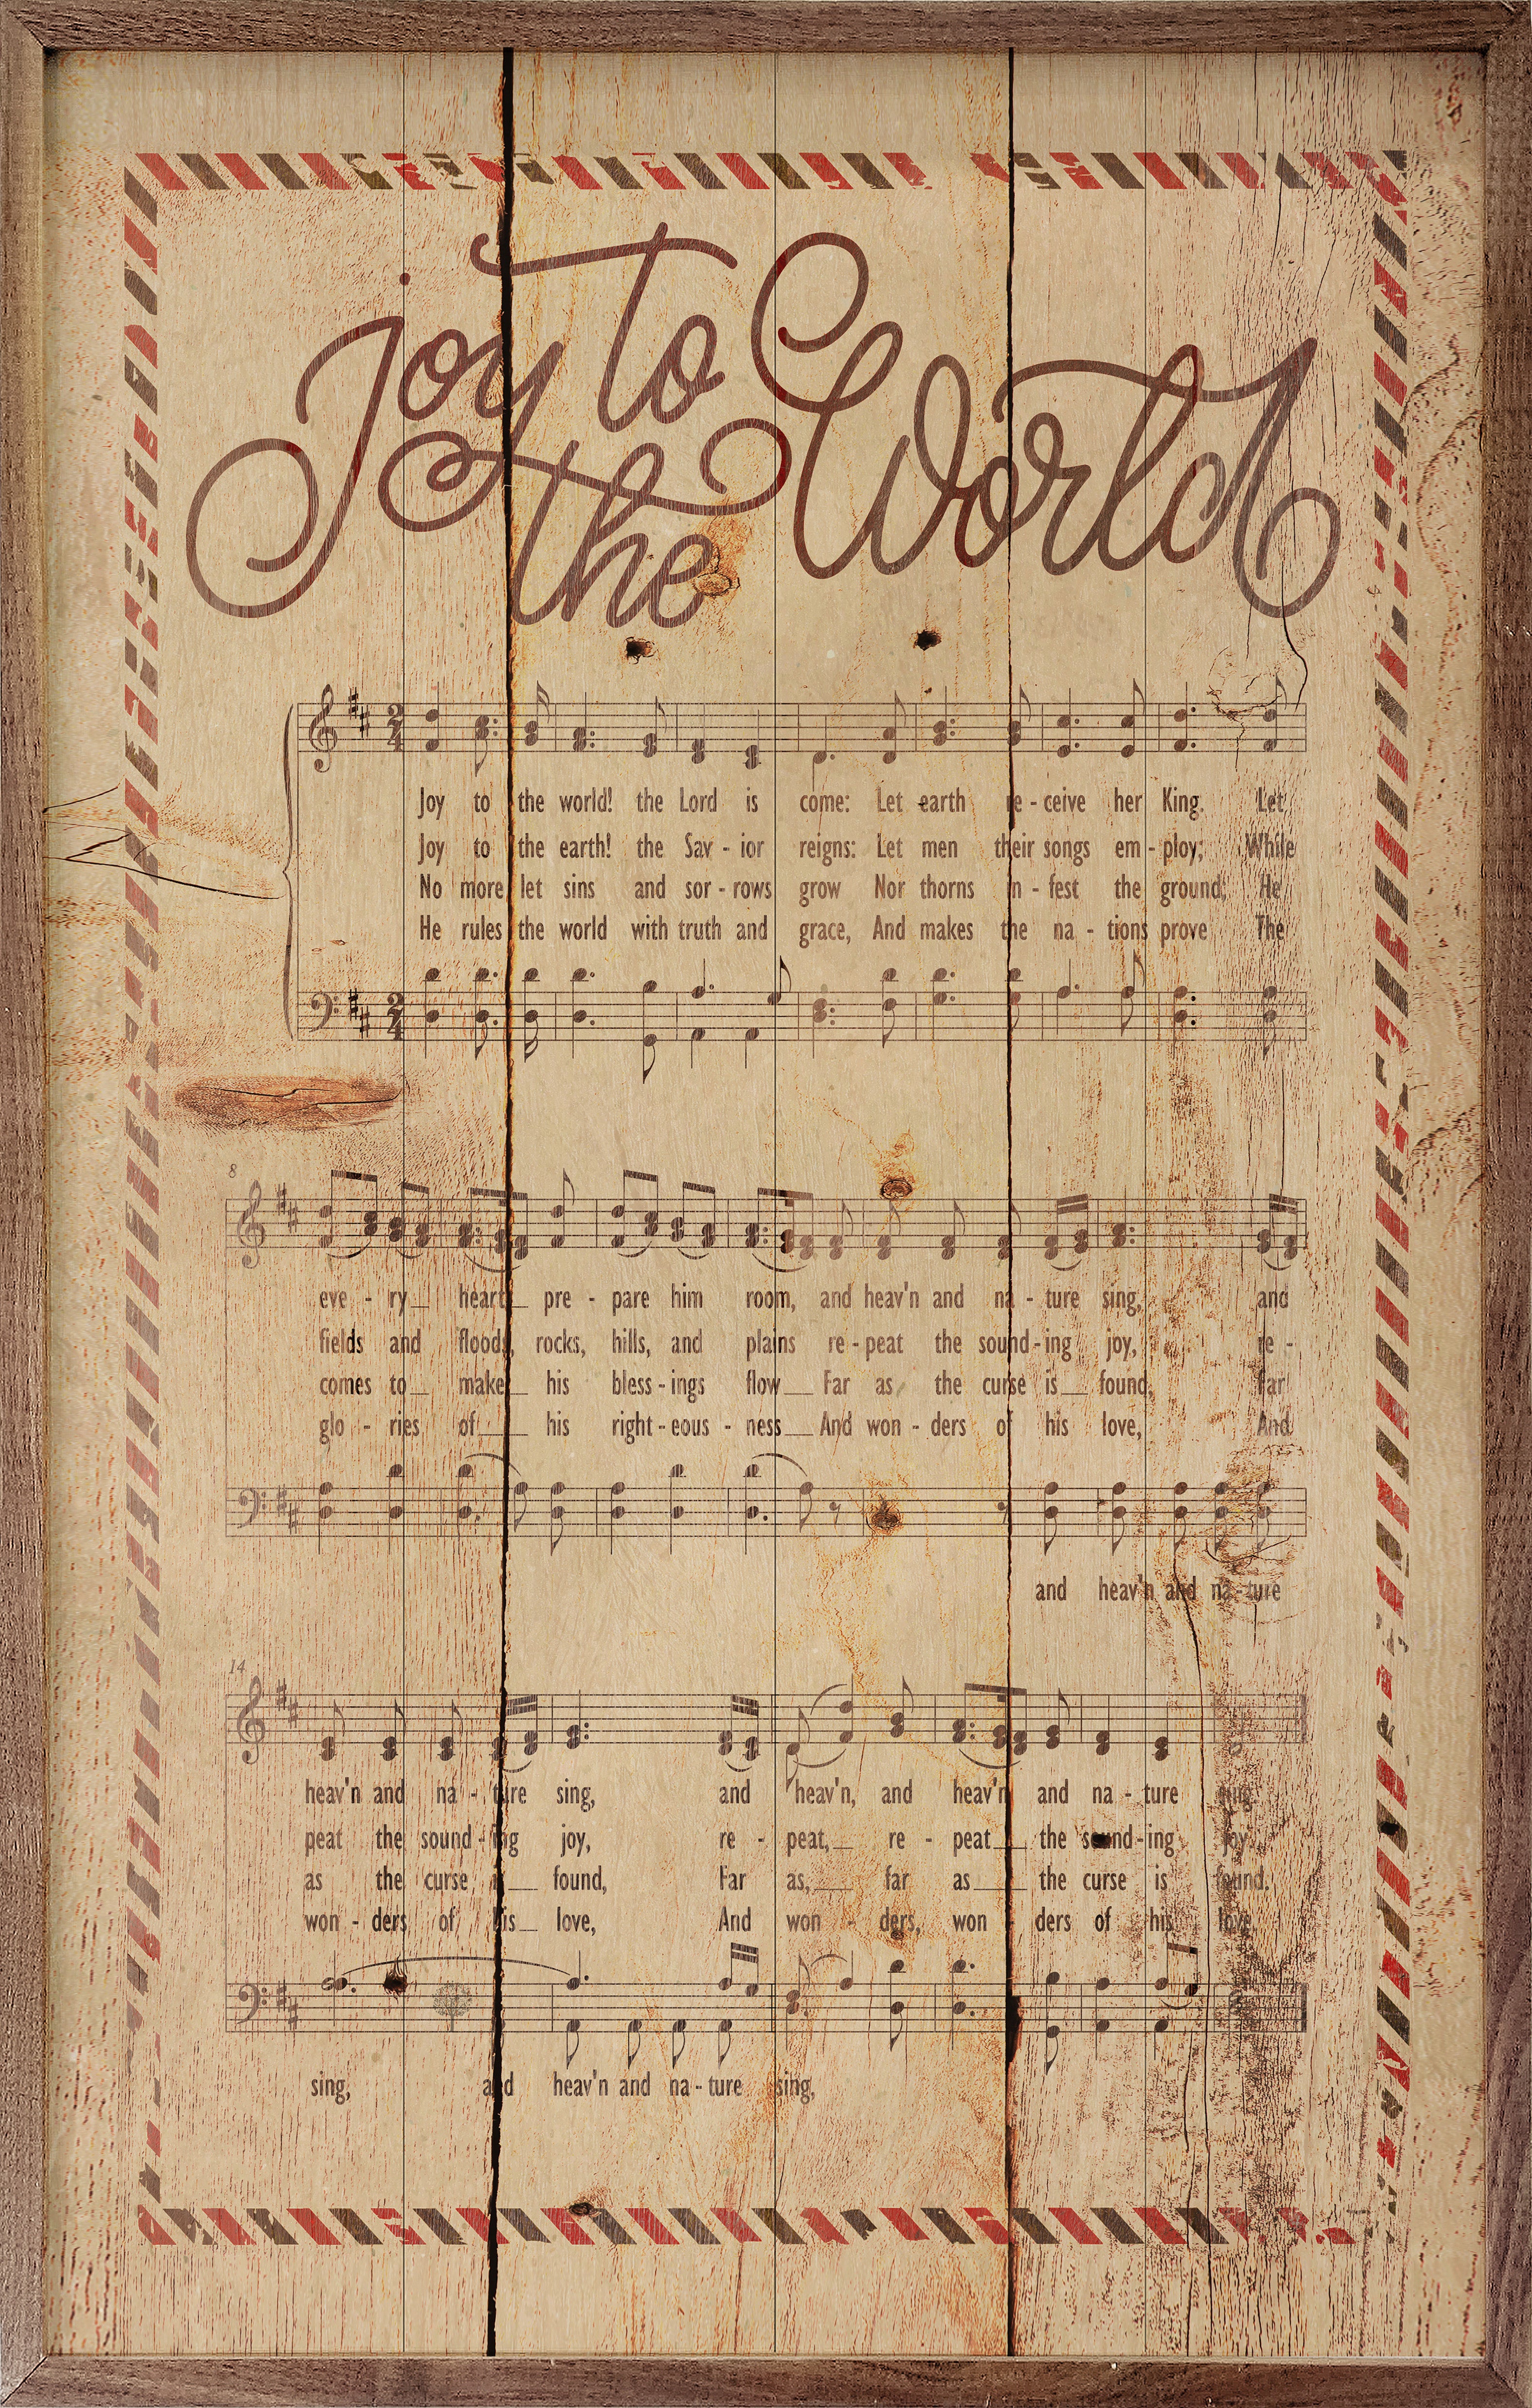 Joy to
the World
2
4
Joy to the world! the Lord is come: Let earth re - ceive her King. Let
Joy to the earth! the Sav - ior reigns: Let men their songs em - ploy; While
No more let sins and sor - rows grow Nor thorns in - fest the ground; He
He rules the world with truth and grace, And makes the na - tions prove The
2
4
8
eve - ry__ heart__ pre - pare him room, and heav'n and na - ture sing, and
fields and floods, rocks, hills, and plains re - peat the sound - ing joy, re -
comes to__ make__ his bless - ings flow__ Far as the curse is__ found, Far
glo - ries of____ his right - eous - ness__ And won - ders of his love, And
and heav'n and na - ture
14
heav'n and na - ture sing, and heav'n, and heav'n and na - ture sing.
peat the sound - ing joy, re - peat,__ re - peat__ the sound - ing joy.
as the curse is__ found, Far as,__ far as__ the curse is found.
won - ders of his__ love, And won - ders, won - ders of his love.
sing, and heav'n and na - ture sing,